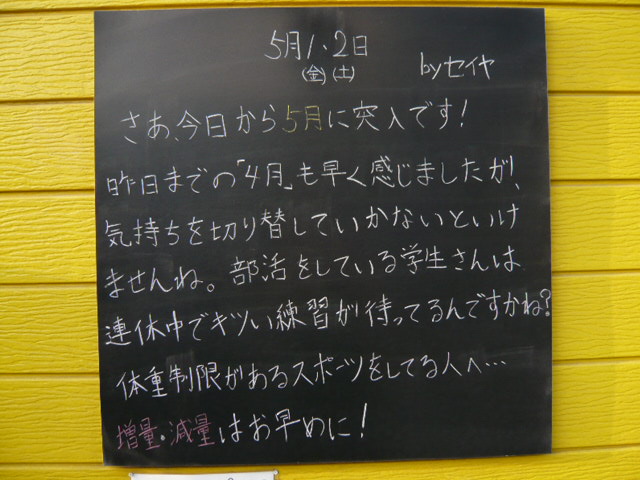 5月1.2日
(金)(土)
byセイヤ
さあ、今日から5月に突入です!
昨日までの「4月」も早く感じましたが、
気持ちを切り替していかないといけ
ませんね。部活をしている学生さんは
連休中でキツい練習が待ってるんですかね?
体重制限があるスポーツをしてる人へ…
増量。減量はお早めに!